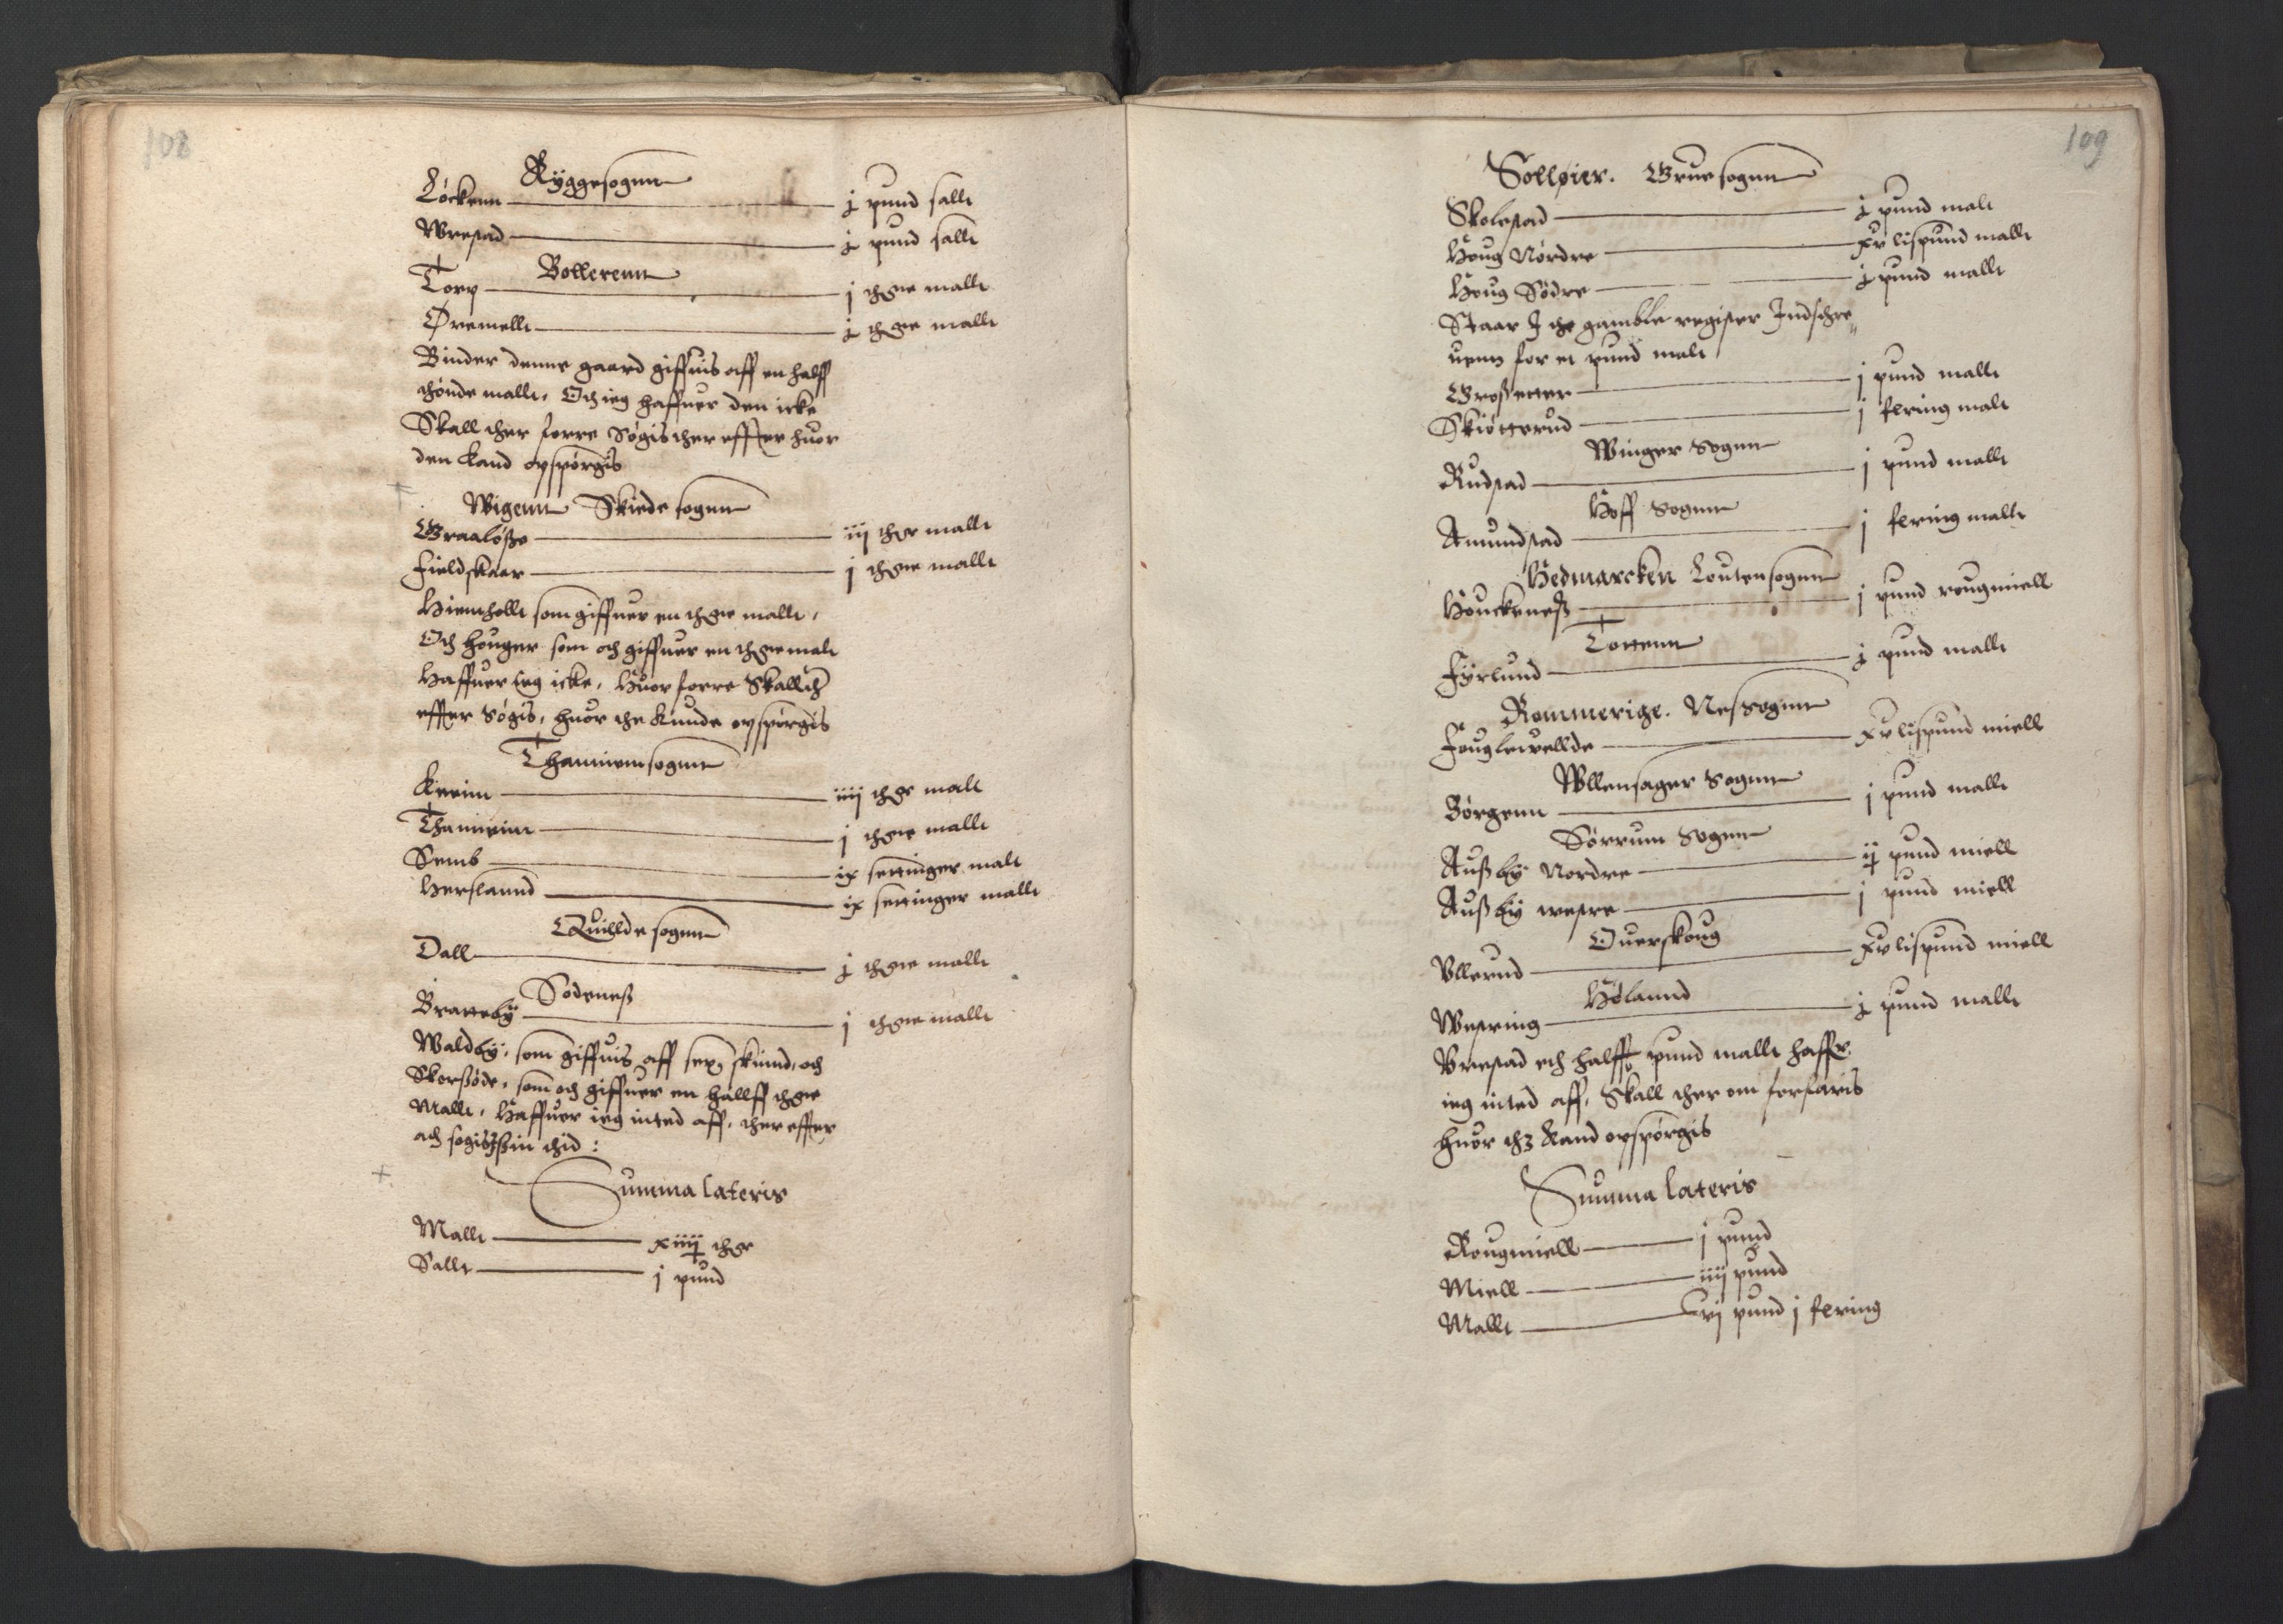 108
Ryggesognn
Løckenn j pund sallt
Wrestad j pund sallt
Bollerenn
Torp j thøne mallt
Øremellt j thøne mallt
Binder denne gaard giffuis aff en halff
thønde mallt, Och ieg haffuer den icke
Skall ther forre Søgis ther effter huor
den kand opspørgis
Wigenn Skiede sognn
Graaløsze iij thøe mallt
Fieldskaar j thøne mallt
Hiemhollt som giffuer en thøne mallt,
Och houger som och giffuer en thøne malt
Haffuer ieg icke, Huor forre Skall th
effter Søgis, huor the kunde opspørgis
Thannemsognn
Kreim iiij thøe malt
Thanneim j thøne mallt
Semb ix settinger malt
Herslannd ix settinger mallt
Quillde sognn
Dall j thøne mallt
Sødeness
Bratteby j thøne mallt
Waldby, som giffuis aff sex skiind, och
Skorsøde, som och giffuer en hallff thøne
Mallt, Haffuer ieg inted aff, ther effter
ath søgis sin thid :
Summa lateris
Mallt xiiij thøe
Sallt j pund
109
Solløier. Gruesognn
Skolestad j pund malt
Houg Nørdre xv lispund mallt
Houg Sødre j pund mallt
Staar I the gamble register Indschre
uenn for et pund malt
Grosetter j pund mallt
Skiøtterud j fering malt
Winger Sognn
Rudstad j pund mallt
Hoff Sognn
Amundstad j fering mallt
Hedmarcken Loutensognn
Houckeness j pund rougmiell
Tottenn
Fyrlund j pund mallt
Rommerige. Nessognn
Fougleuellde xv lispund miell
Wllensager Sognn
Børgenn j pund mallt
Sørrum Sognn
Aussby Nordre ij pund miell
Aussby westre j pund miell
Ouerskoug
Vllerud xv lispund miell
Hølannd
Westring j pund mallt
Vrestad eth halfft pund mallt haffr
ieg inted aff, Skall ther om forfaris
huor thz kand opspørgis
Summa lateris
Rougmiell j pund
Miell iiij pund
Mallt vj pund j fering